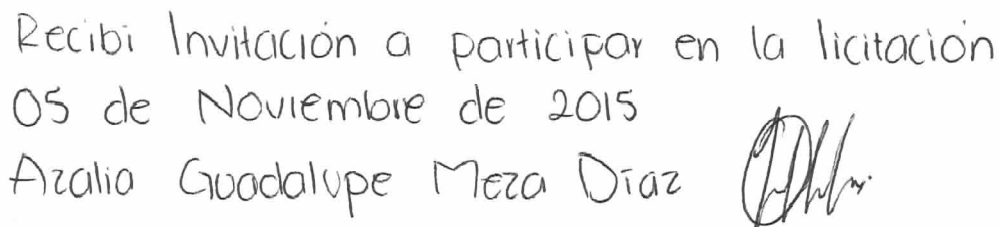 Recibi Invitación a participar en la licitación
05 de Noviembre de 2015
Azalia Guadalupe Meza Díaz